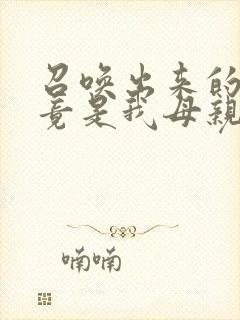 召唤出来的
竟是我母親
喃喃